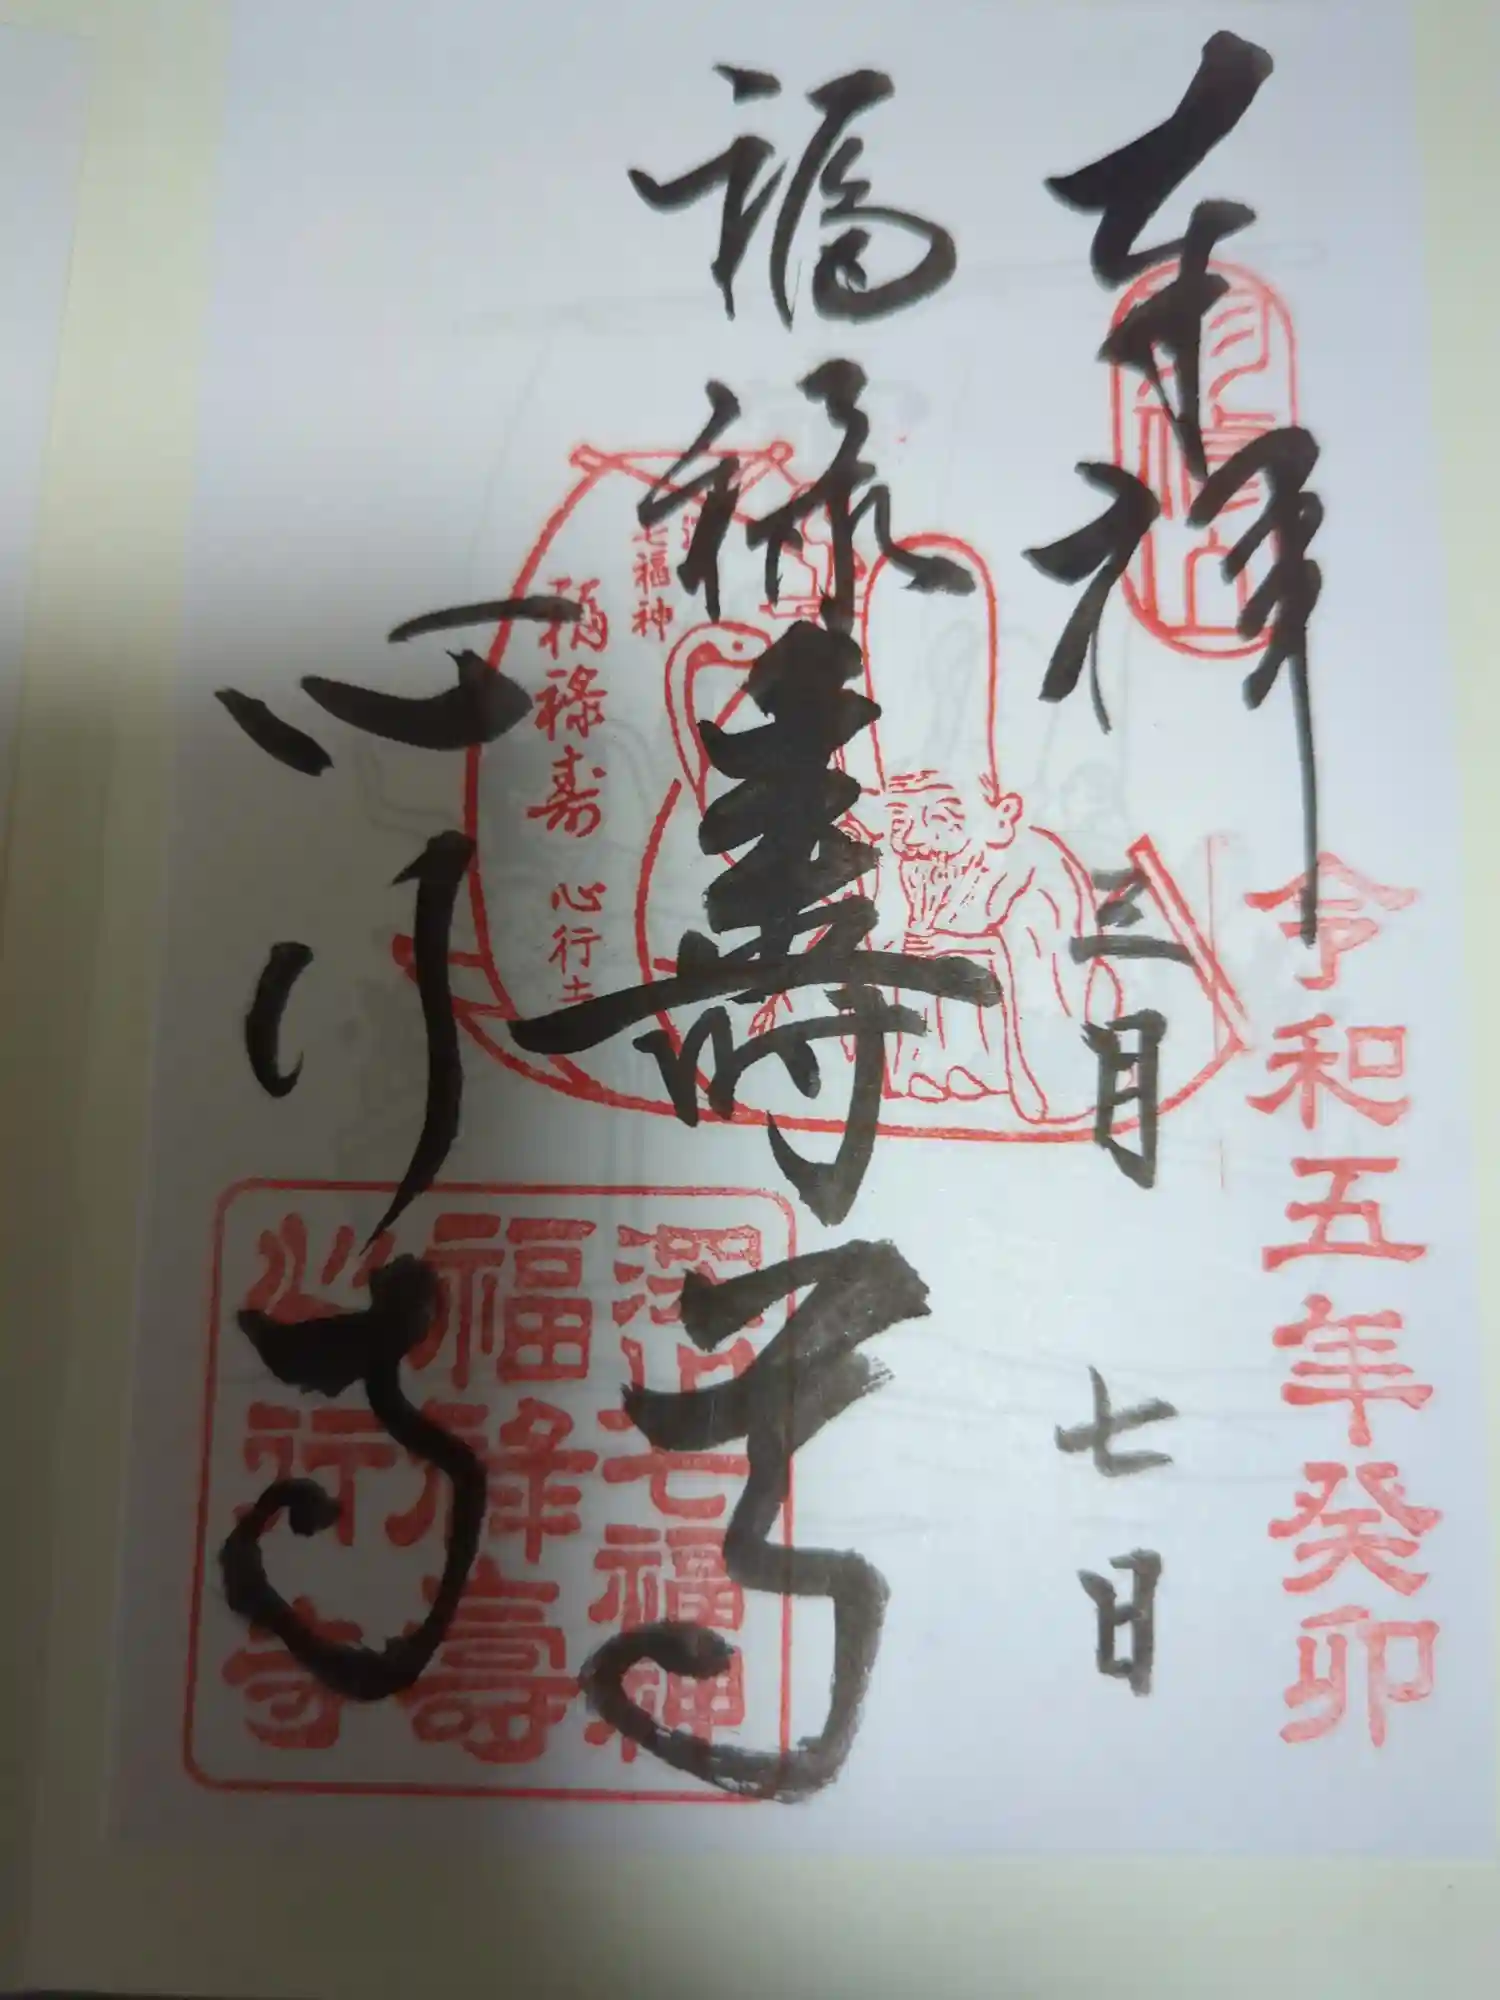 奉拝
令和五年癸卯
三月七日
福禄寿尊
心行寺
七福神
福禄寿 心行寺
深川七福神
福禄壽
心行寺